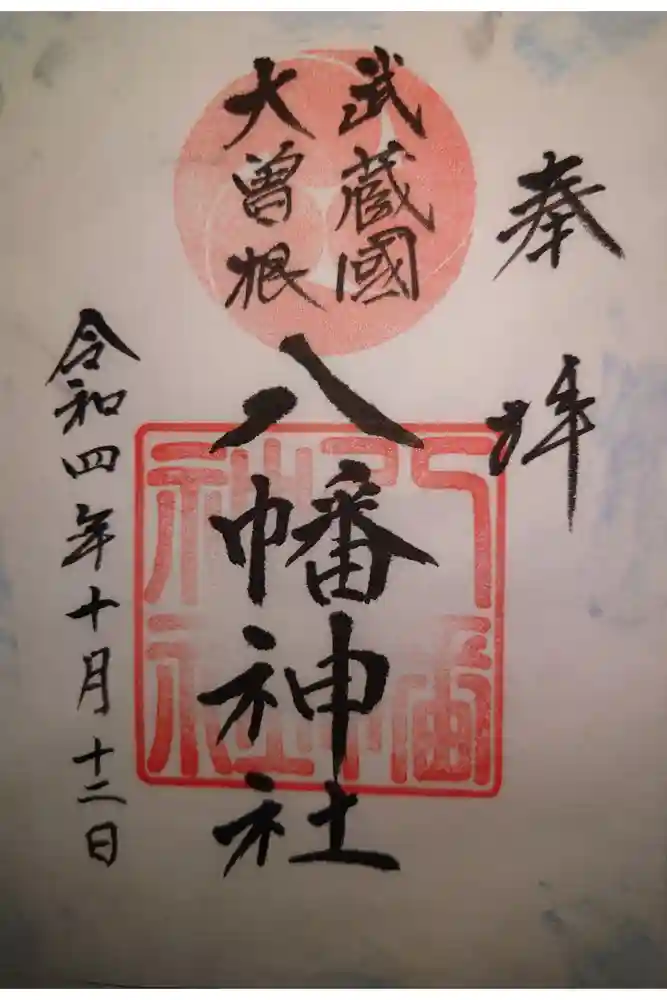 奉拝
武蔵國
大曽根
八幡神社
令和四年十月十二日
八幡神社